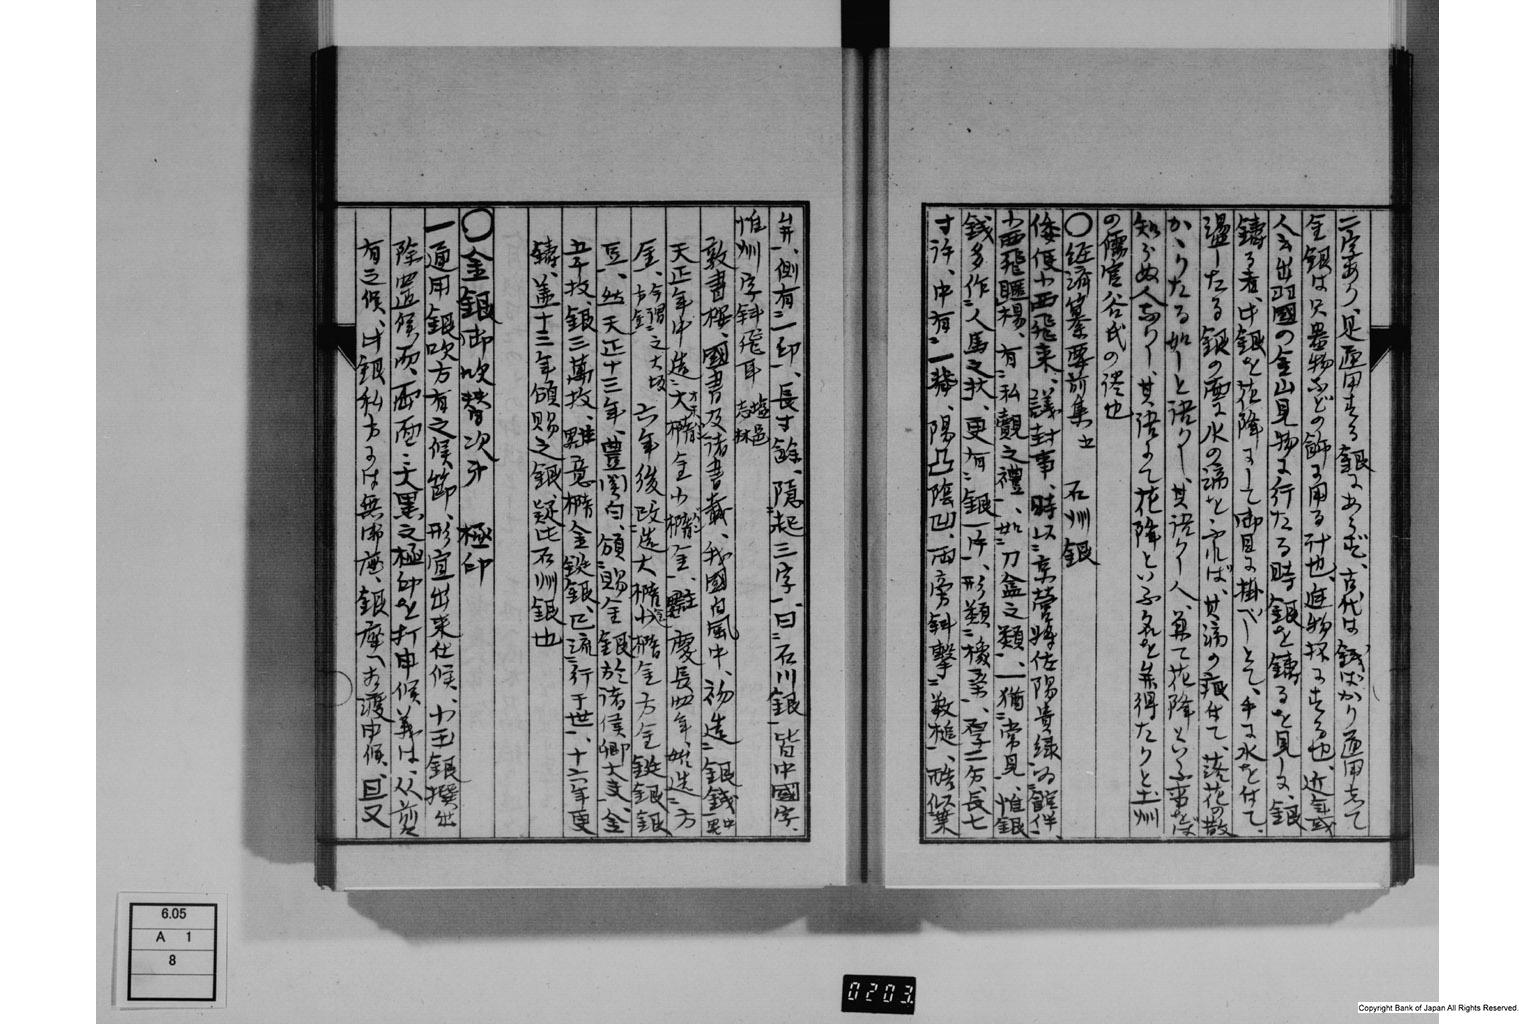 二字あり、是通用する銀にあらず、古代は銭ばかり通用して
金銀は只器物などの飾に用る計也、進物抔にする也、近年或
人云出羽國の金山見物に行たる時銀を鋳るを見しに、銀
鋳る者、此銀を花降にして御目に掛べしとて、手に水を付て、
盪したる銀の面に水の滴をふれば、其滴の痕せて、落花の散
かゝりたる如しと語りし、其語りし人、兼て花降といふ事をば
知らぬ人なりし、其語にて花降といふ名を無得たりと土州
の儒官谷氏の渡也
〇経済纂要前集 石州銀
倭使小西飛来、議封事、時以京営将佐陽貴緑為館伴、
小西飛贐楊、有私覿之禮、如刀盆之類、猶常見、惟銀
銭多作人馬之状、更有銀一片、形類橡葉、厚二分、長七
寸許、中有一脊、陽凸陰凹、両旁斜撃数槌、酷似葉
弁、側有一印、長寸餘、隠起三字、曰石川銀、皆中國字、
惟州字斜飛耳
敦書按、國書及諸書載、我國白鳳中、初造銀銭
天正年中造大橢金小橢金、慶長四年、始造方
金、六年後改造大橢小橢金方金錠銀銀
豆、然天正十三年、豊関白、頒賜金銀於諸侯卿大夫、金
五千枚、銀三萬枚、難意橢金錠銀、已流行于世、十六年更
鋳、蓋十三年頒賜之銀、疑此石州銀也
〇金銀御吹替次第 極印
一通用銀吹方有之候節、形宜出来仕候、小玉銀撰出
除置候而、両面ニ大黒之極印を打申候義は、以前
有之候、此銀私方には無御座、銀座へ相渡申候、且又
6.05
A 1
8
0203
Copyright Bank of Japan All Rights Reserved.